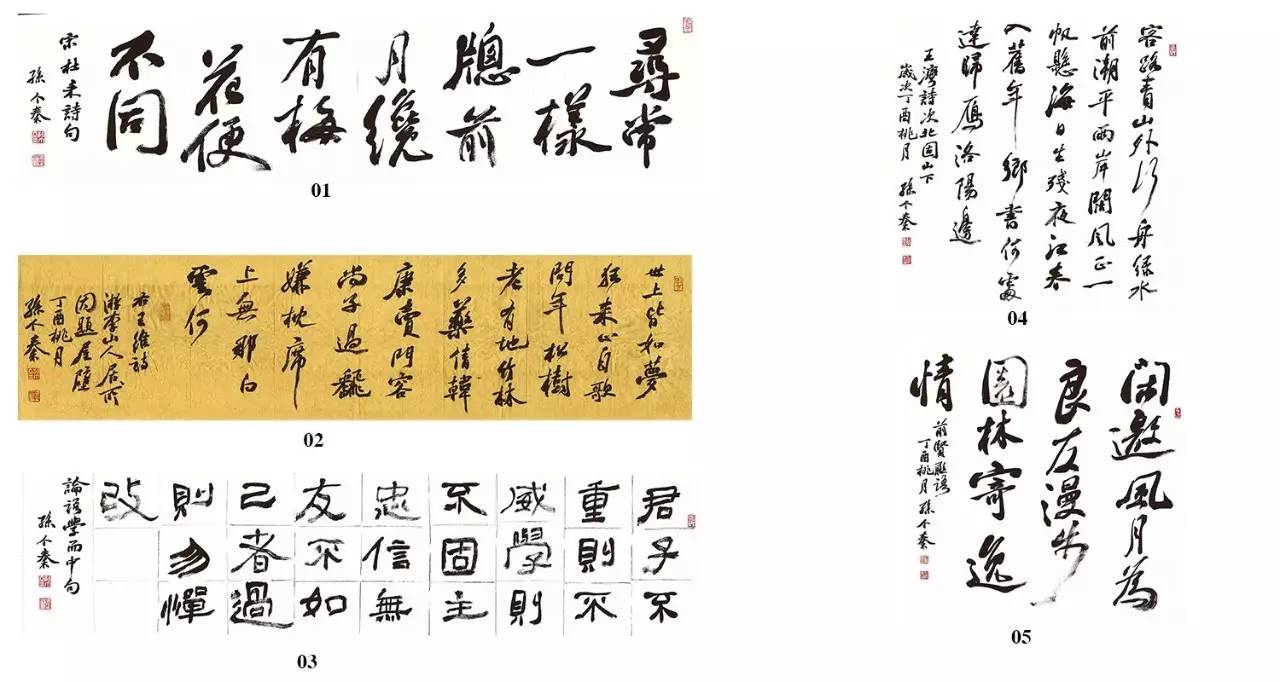 尋常
一樣
牕前
月纔
有梅
花便
不同
宋杜耒詩句
孫个秦
01
世上皆如夢
狂來止自歌
問年松樹
老有地竹林
多藥倩韓
康賣門容
尚子過翻
嫌枕席
上無那白
雲何
右王維詩
游李山人居所
因題屋壁
丁酉桃月
孫个秦
02
君子不
重則不
威學則
不固主
忠信無
友不如
己者過
則勿憚
改
論語學而中句
孫个秦
03
客路青山外行舟綠水
前潮平兩岸闊風正一
帆懸海日生殘夜江春
入舊年鄉書何處
達歸雁洛陽邊
王灣詩次北固山下
歲次丁酉桃月 孫个秦
04
閑邀風月為
良友漫步
園林寄逸
情
前賢聯語
丁酉桃月 孫个秦
05